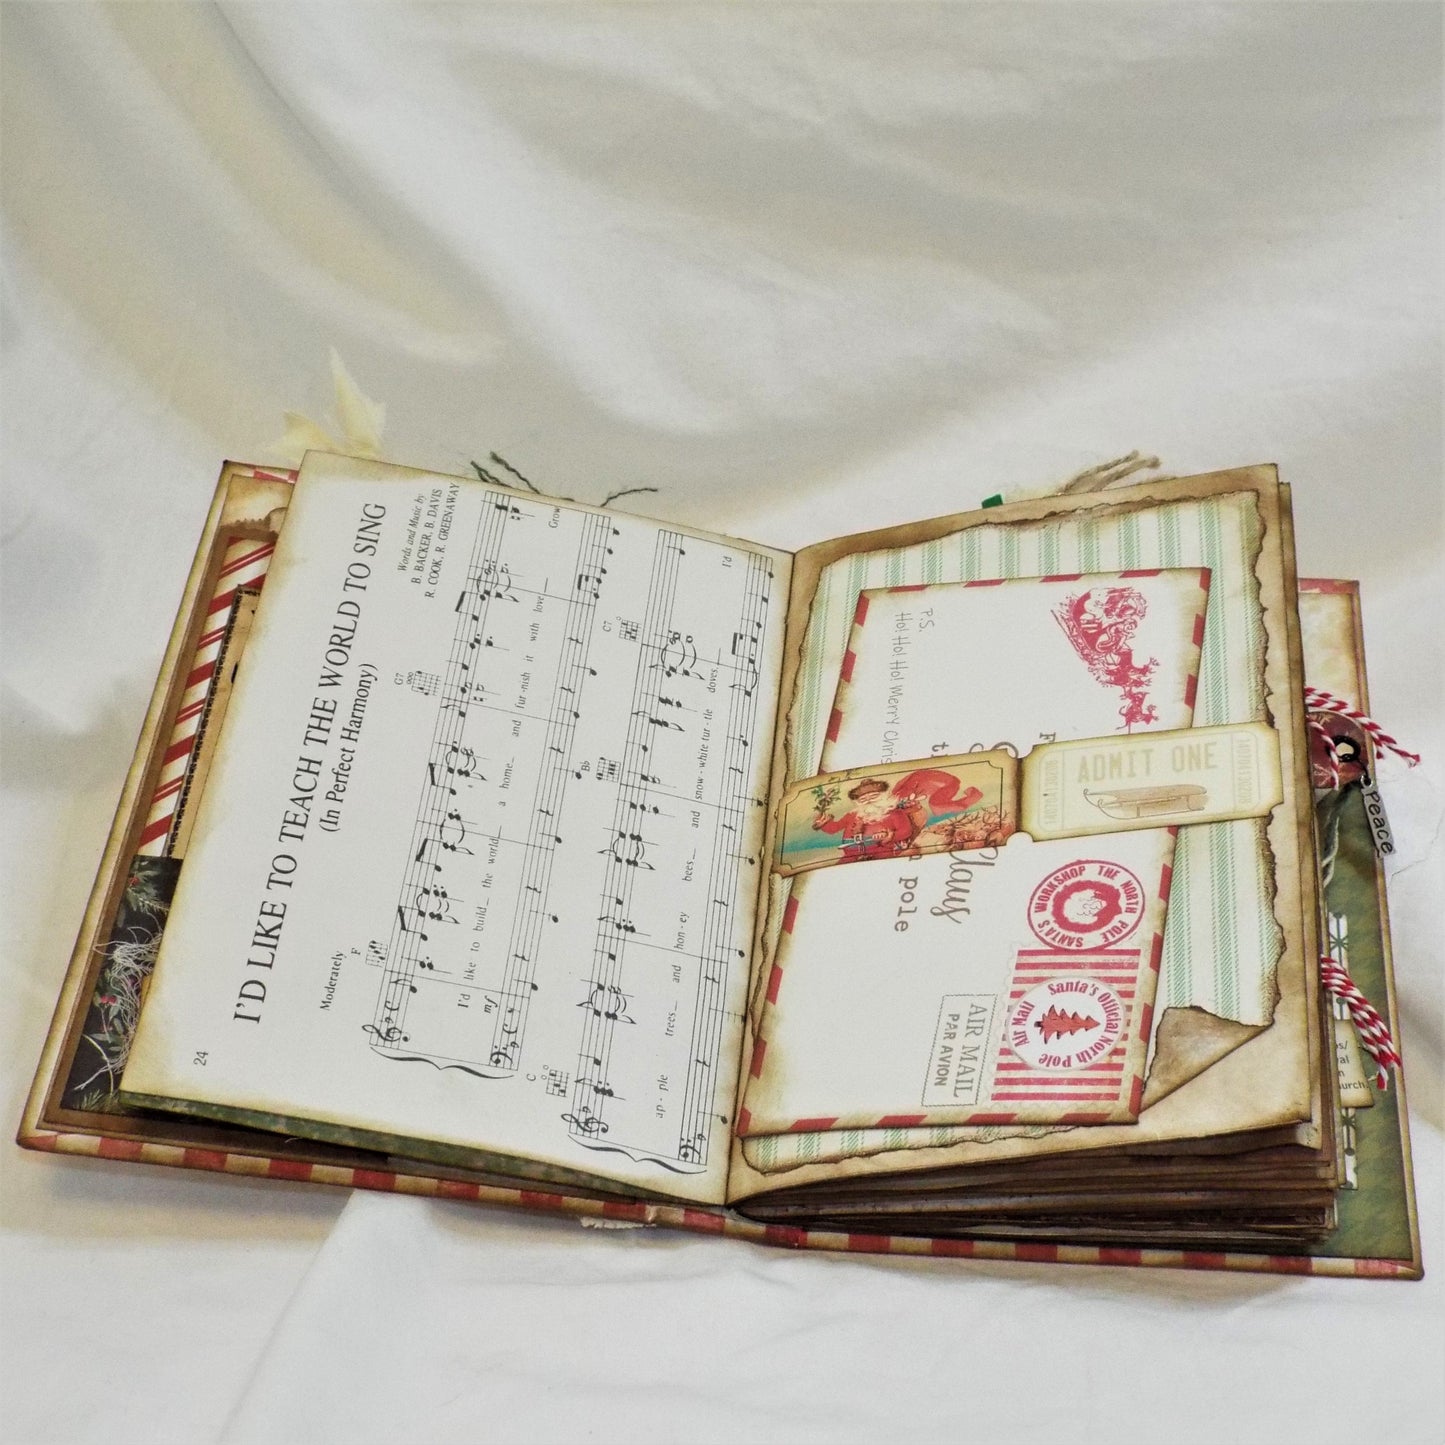 24
I'D LIKE TO TEACH THE WORLD TO SING
(In Perfect Harmony)
Words and Music by
B. BACKER, B. DAVIS
R. COOK, R. GREENAWAY
Moderately
F
G7
mf
I'd like to build_ the world_ a home_ and fur - nish it with love_ Grow
C
Bb
C7
ap - ple trees_ and hon - ey bees_ and snow - white tur - tle doves._ I'd
P.S.
Ho! Ho! Ho! Merry Chris
Claus
pole
ADMIT ONE
SANTA'S WORKSHOP THE NORTH POLE
Air Mail Santa's Official North Pole
AIR MAIL
PAR AVION
Peace